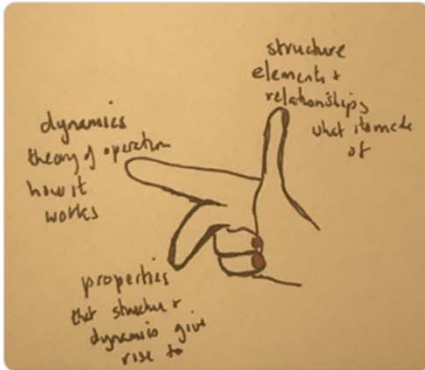 structure
elements +
relationships
what its made
of
dynamics
theory of operation
how it
works
properties
that structure +
dynamics give
rise to